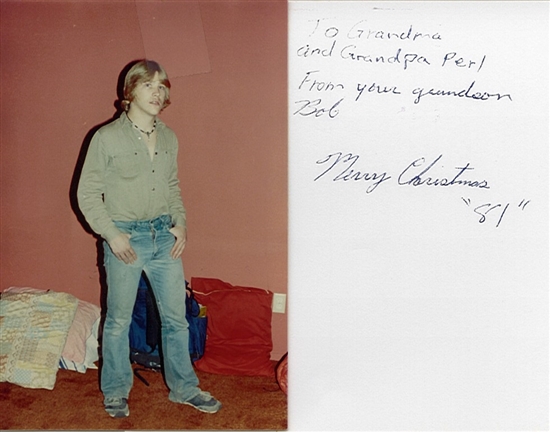 To Grandma
and Grandpa Perl
From your grandson
Bob
Merry Christmas
"81"